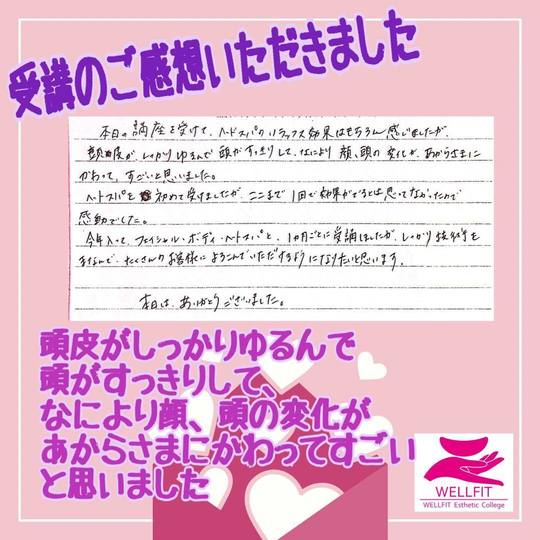 受講のご感想いただきました
本日の講座を受けて、ヘッドスパのリラックス効果はもちろん感じましたが、
頭皮が、しっかりゆるんで頭がすっきりして、なにより顔、頭の変化が、あからさまに
かわって、すごいと思いました。
ヘッドスパを初めて受けましたが、ここまで1回で効果がでるとは思ってなかったので
感動でした。
今年入って、フェイシャル・ボディ・ヘッドスパと、1ヵ月ごとに受講しましたが、しっかり技術を
まなんで、たくさんのお客様によろこんでいただけるようになりたいと思います。
本日は、ありがとうございました。
頭皮がしっかりゆるんで
頭がすっきりして、
なにより顔、頭の変化が
あからさまにかわってすごい
と思いました
WELLFIT
WELLFIT Esthetic College